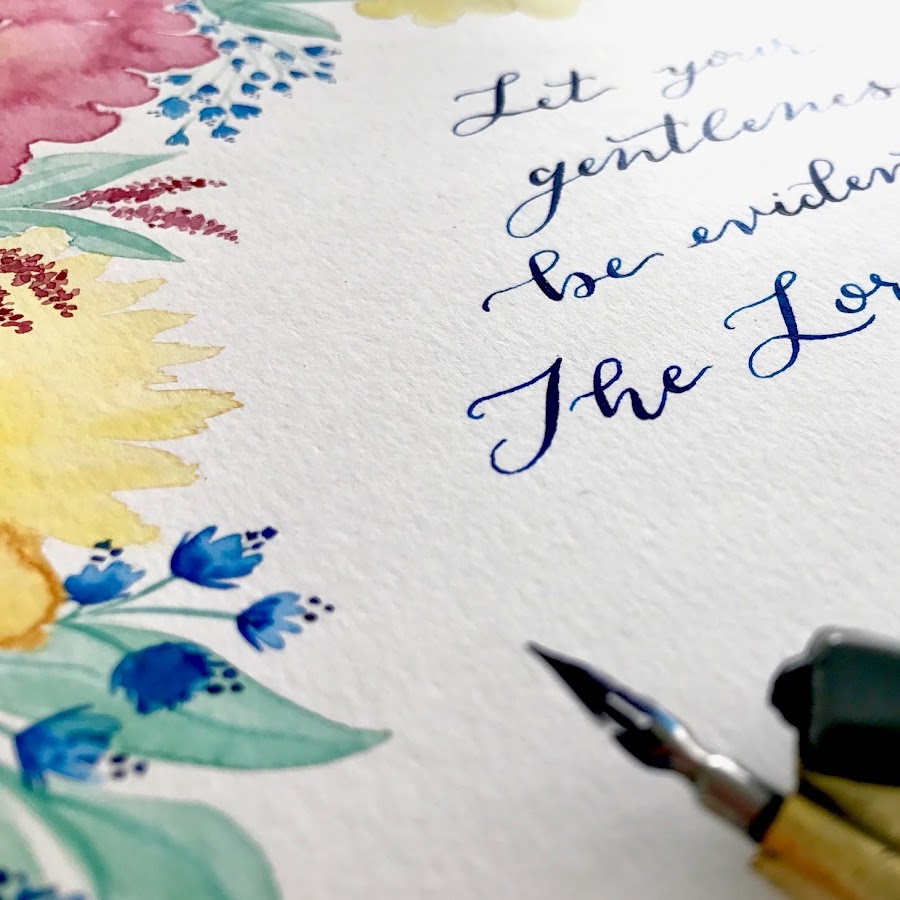 Let your
gentlenes
be eviden
The Lor